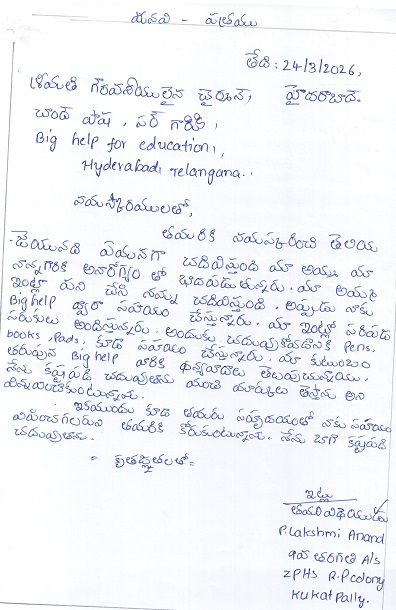 మనవి - పత్రము
తేది : 24/3/2026,
శ్రీమతి గౌరవనీయులైన చైర్మన్, హైదరాబాద్.
చాంద్ పాష, సర్ గారికి,
Big help for education,
Hyderabad, Telangana..
నమస్కారములతో,
తమరికి నమస్కరించి తెలియ
జేయునది ఏమనగా చదివిస్తుంది మా అమ్మ మా
నాన్నగారికి అనారోగ్యం తో బాధపడుతున్నారు. మా అమ్మ
ఇంట్లో పని చేసి నన్ను చదివిస్తుంది. అప్పుడు నాకు
Big help ద్వారా సహాయం చేస్తున్నారు. మా ఇంట్లో సరిపడ
సరుకులు అందిస్తున్నారు. అందుకు చదువుకోవడానికి Pens,
books, Pads, కూడ సహాయం చేస్తున్నారు. మా కుటుంబం
తరుపున Big help వారికి ధన్యవాదాలు తెలుపుచున్నాయి.
నేను కష్టపడి చదువుతాను మంచి మార్కులు తెస్తాను అని
విన్నవించుకుంటున్నాను.
ఇకముందు కూడ తమరు సహృదయంతో నాకు సహాయం
చేయగలరని తమరికి కోరుకుంటున్నాను. నేను బాగా కష్టపడి
చదువుతాను.
= కృతజ్ఞతలతో =
ఇట్లు
తమ విధేయుడు
P. Lakshmi Anand
9వ తరగతి A/s
ZPHS R.P colony
Kukatpally.